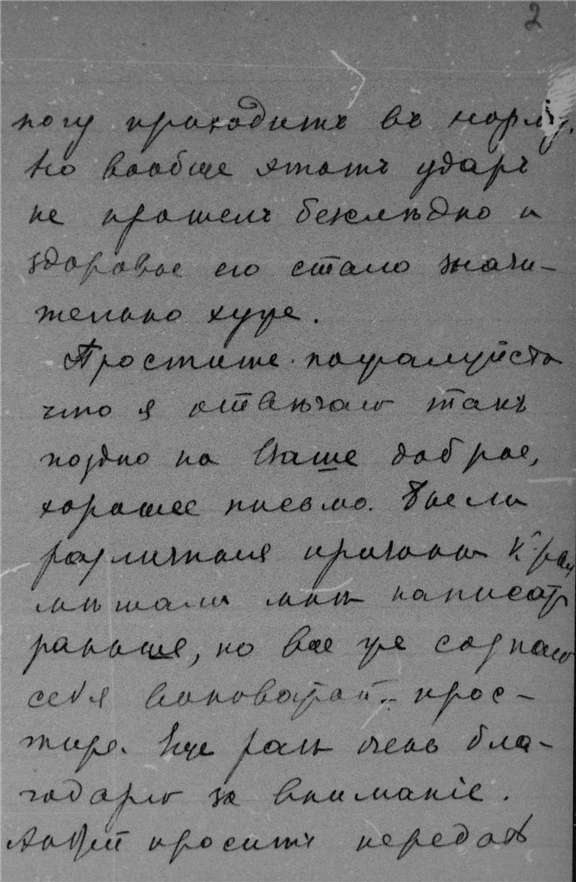 2
ногу приходитъ въ норму.
Но вообще этотъ ударъ
не прошелъ безслѣдно и
здоровье его стало значи-
тельно хуже.
Простите пожалуйста
что я отвѣчаю такъ
поздно на Ваше доброе,
хорошее письмо. Были
различныя причины
мѣшали мнѣ написать
раньше, но все же сознаю
себя виноватой
Еще разъ очень бла-
годарю за вниманіе.
проситъ передать